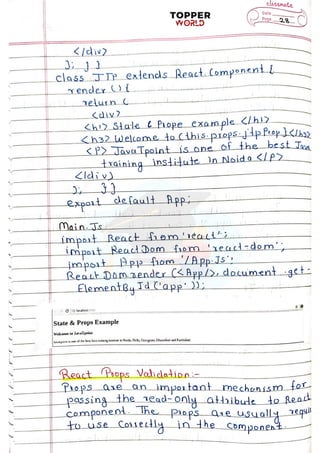 classmate
TOPPER
WORLD
Date
Page 28
</div>
); } }
class JTP extends React.Component {
render () {
return (
<div>
<h1> State & Props example </h1>
<h3> Welcome to {this.props.jtpProp} </h3>
<P> JavaTpoint is one of the best Java
training institute in Noida </P>
</div>
); }}
export default App;
Main.Js
import React from 'react';
import ReactDom from 'react-dom';
import App from './App.Js';
React.Dom.render (<App/>, document.get-
ElementById ('app'));
State & Props Example
Welcome to JavaTpoint
React Props Validation:-
Props are an important mechanism for
passing the read-only attribute to React
component. The props are usually requi
to use correctly in the component.